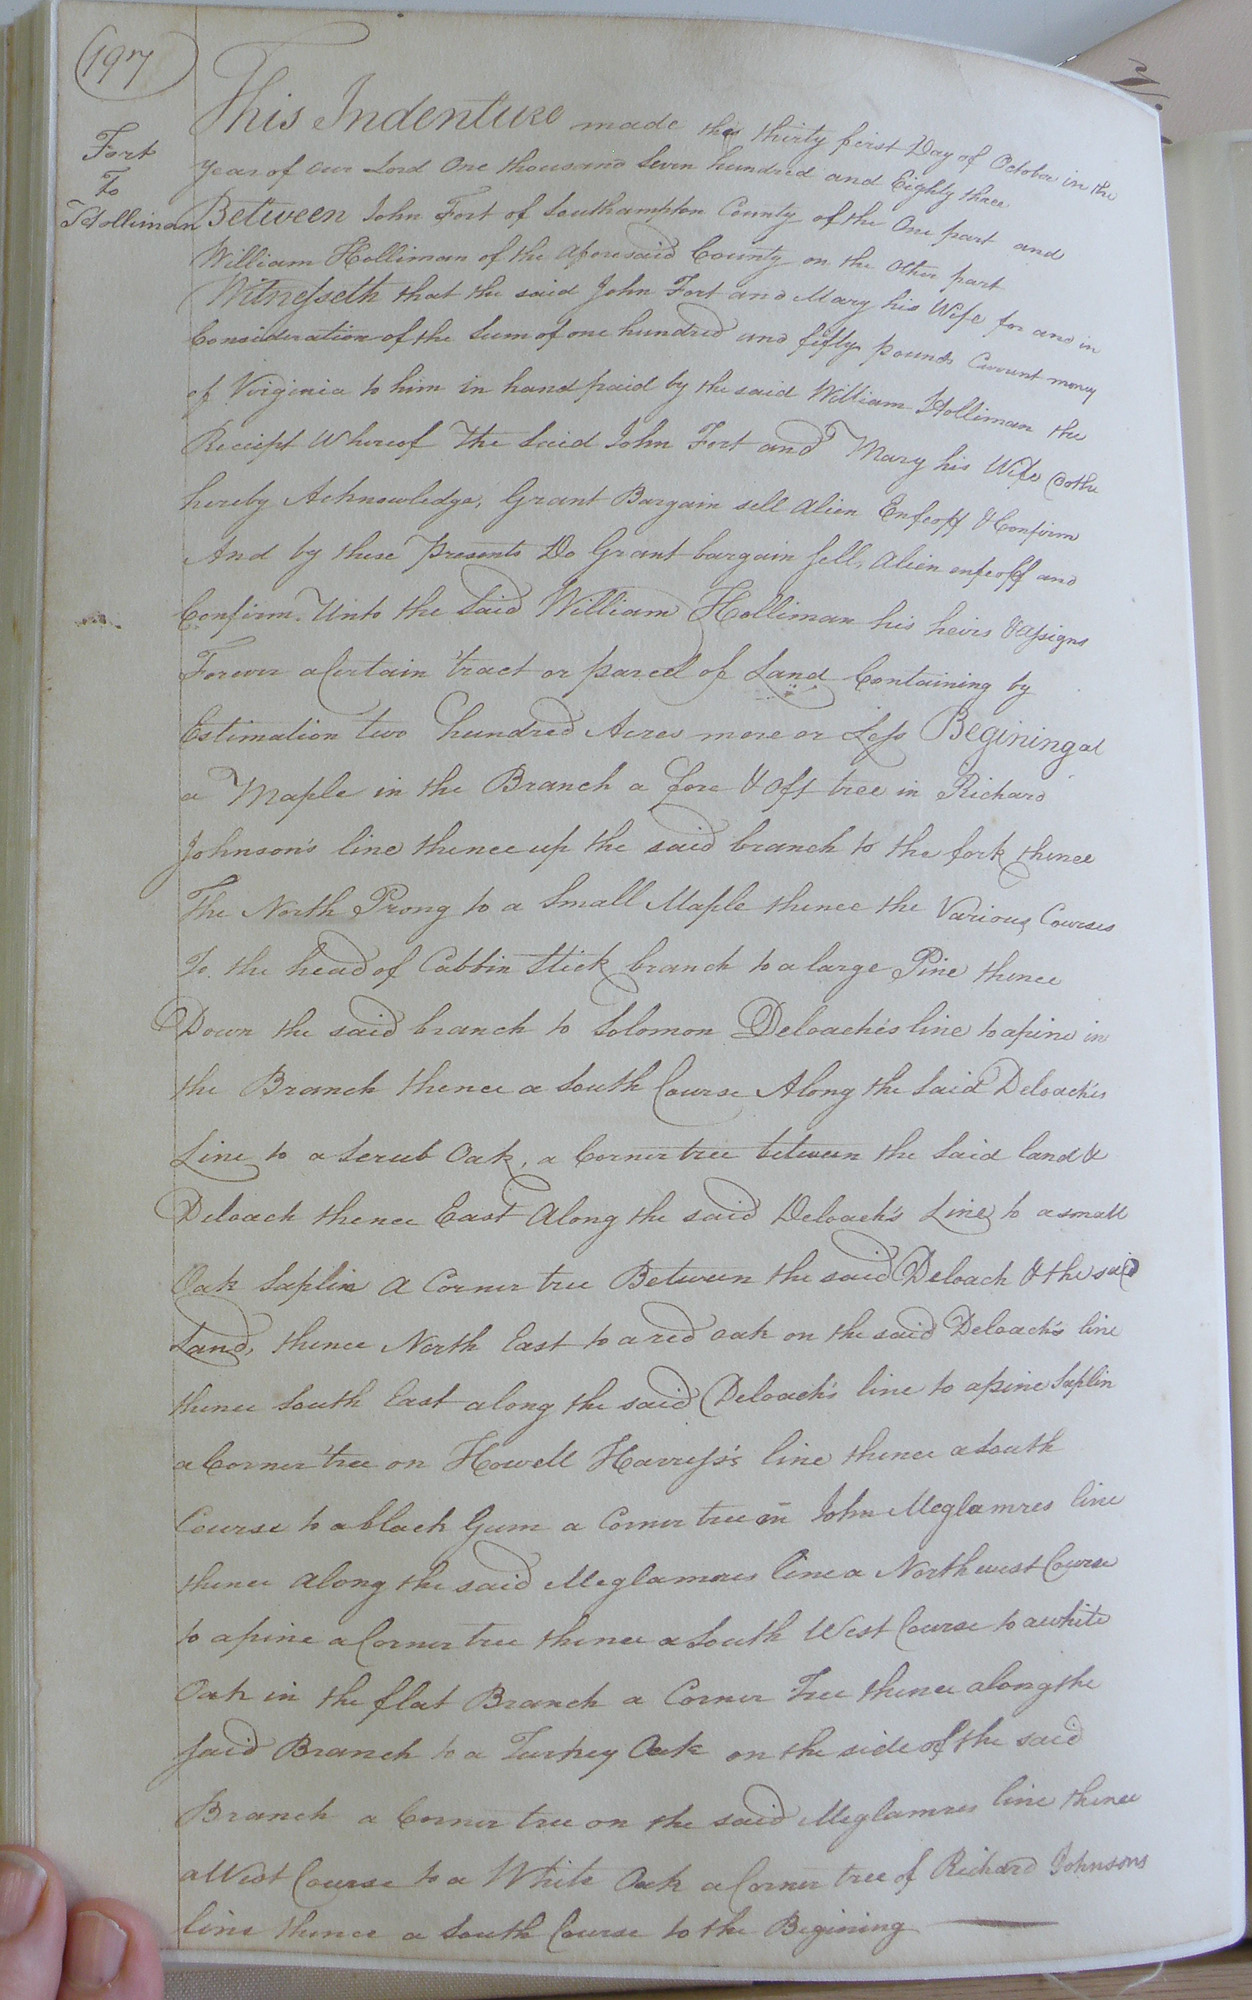 197
Fort
To
Holliman
This Indenture made this thirty first Day of October in the
Year of our Lord One thousand Seven hundred and Eighty three
Between John Fort of Southampton County of the One part and
William Holliman of the aforesaid County on the other part
Witnesseth that the said John Fort and Mary his Wife for and in
Consideration of the Sum of one hundred and fifty pounds Current money
of Virginia to him in hand paid by the said William Holliman the
Reciept Whereof The Said John Fort and Mary his Wife doth
hereby Acknowledge, Grant Bargain sell Alien Enfeoff & Confirm
And by these Presents Do Grant bargain Sell, Alien enfeoff and
Confirm Unto the Said William Holliman his heirs & assigns
Forever a Certain tract or parcel of Land Containing by
Estimation two hundred Acres more or Less Begining at
a Maple in the Branch a fore & Aft tree in Richard
Johnson's line thence up the said branch to the fork thence
The North Prong to a Small Maple thence the Various Courses
To the head of Cabbin Stick branch to a large Pine thence
Down the said branch to Solomon Deloach's line to a pine in
the Branch thence a South Course Along the Said Deloach's
Line to a Scrub Oak, a Corner tree between the Said land &
Deloach thence East Along the said Deloach's Line to a small
Oak Saplin A Corner tree Between the said Deloach & the said
Land, thence North East to a red oak on the said Deloach's line
thence South East along the said Deloach's line to a pine Saplin
a Corner tree on Howell Harress's line thence a South
Course to a black Gum a Corner tree in John Meglamres line
thence along the said Meglamres line a North west Course
to a pine a Corner tree thence a South West Course to a white
Oak in the flat Branch a Corner Tree thence along the
Said Branch to a Turkey Oak on the side of the said
Branch a Corner tree on the said Meglamres line thence
a West Course to a White Oak a Corner tree of Richard Johnsons
line thence a South Course to the Begining